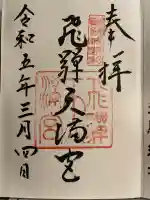 奉拝
飛騨天満宮
令和五年三月四日